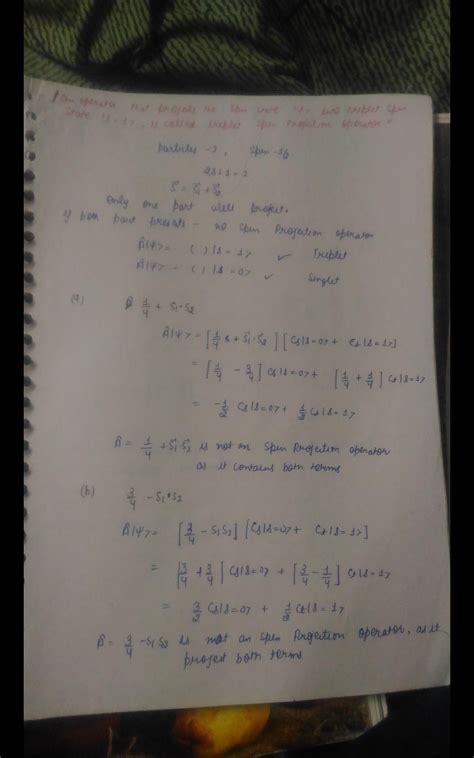 An operator that projects the spin state |ψ> into triplet spin
state |s=1>, is called triplet spin projection operator"
Particles -2, Spin -1/2
2s+1=2
S⃗ = S⃗1+S⃗2
Only one part will project.
If both part presents - no spin projection operator
Â|ψ> = ( ) |s=1> ✓ Triplet
Â|ψ> = ( ) |s=0> ✓ Singlet
(a) 1/4 + S1·S2
Â|ψ> = [1/4 + S⃗1·S⃗2] [Cs|s=0> + Ct|s=1>]
= [1/4 - 3/4] Cs|s=0> + [1/4 + 1/4] Ct|s=1>
= -1/2 Cs|s=0> + 1/2 Ct|s=1>
Â = 1/4 + S⃗1·S⃗2 is not an spin projection operator
as it contains both terms
(b) 3/4 - S1·S2
Â|ψ> = [3/4 - S1S2] [Cs|s=0> + Ct|s=1>]
= [3/4 + 3/4] Cs|s=0> + [3/4 - 1/4] Ct|s=1>
= 3/2 Cs|s=0> + 1/2 Ct|s=1>
Â = 3/4 - S1S2 is not an spin projection operator, as it
project both terms